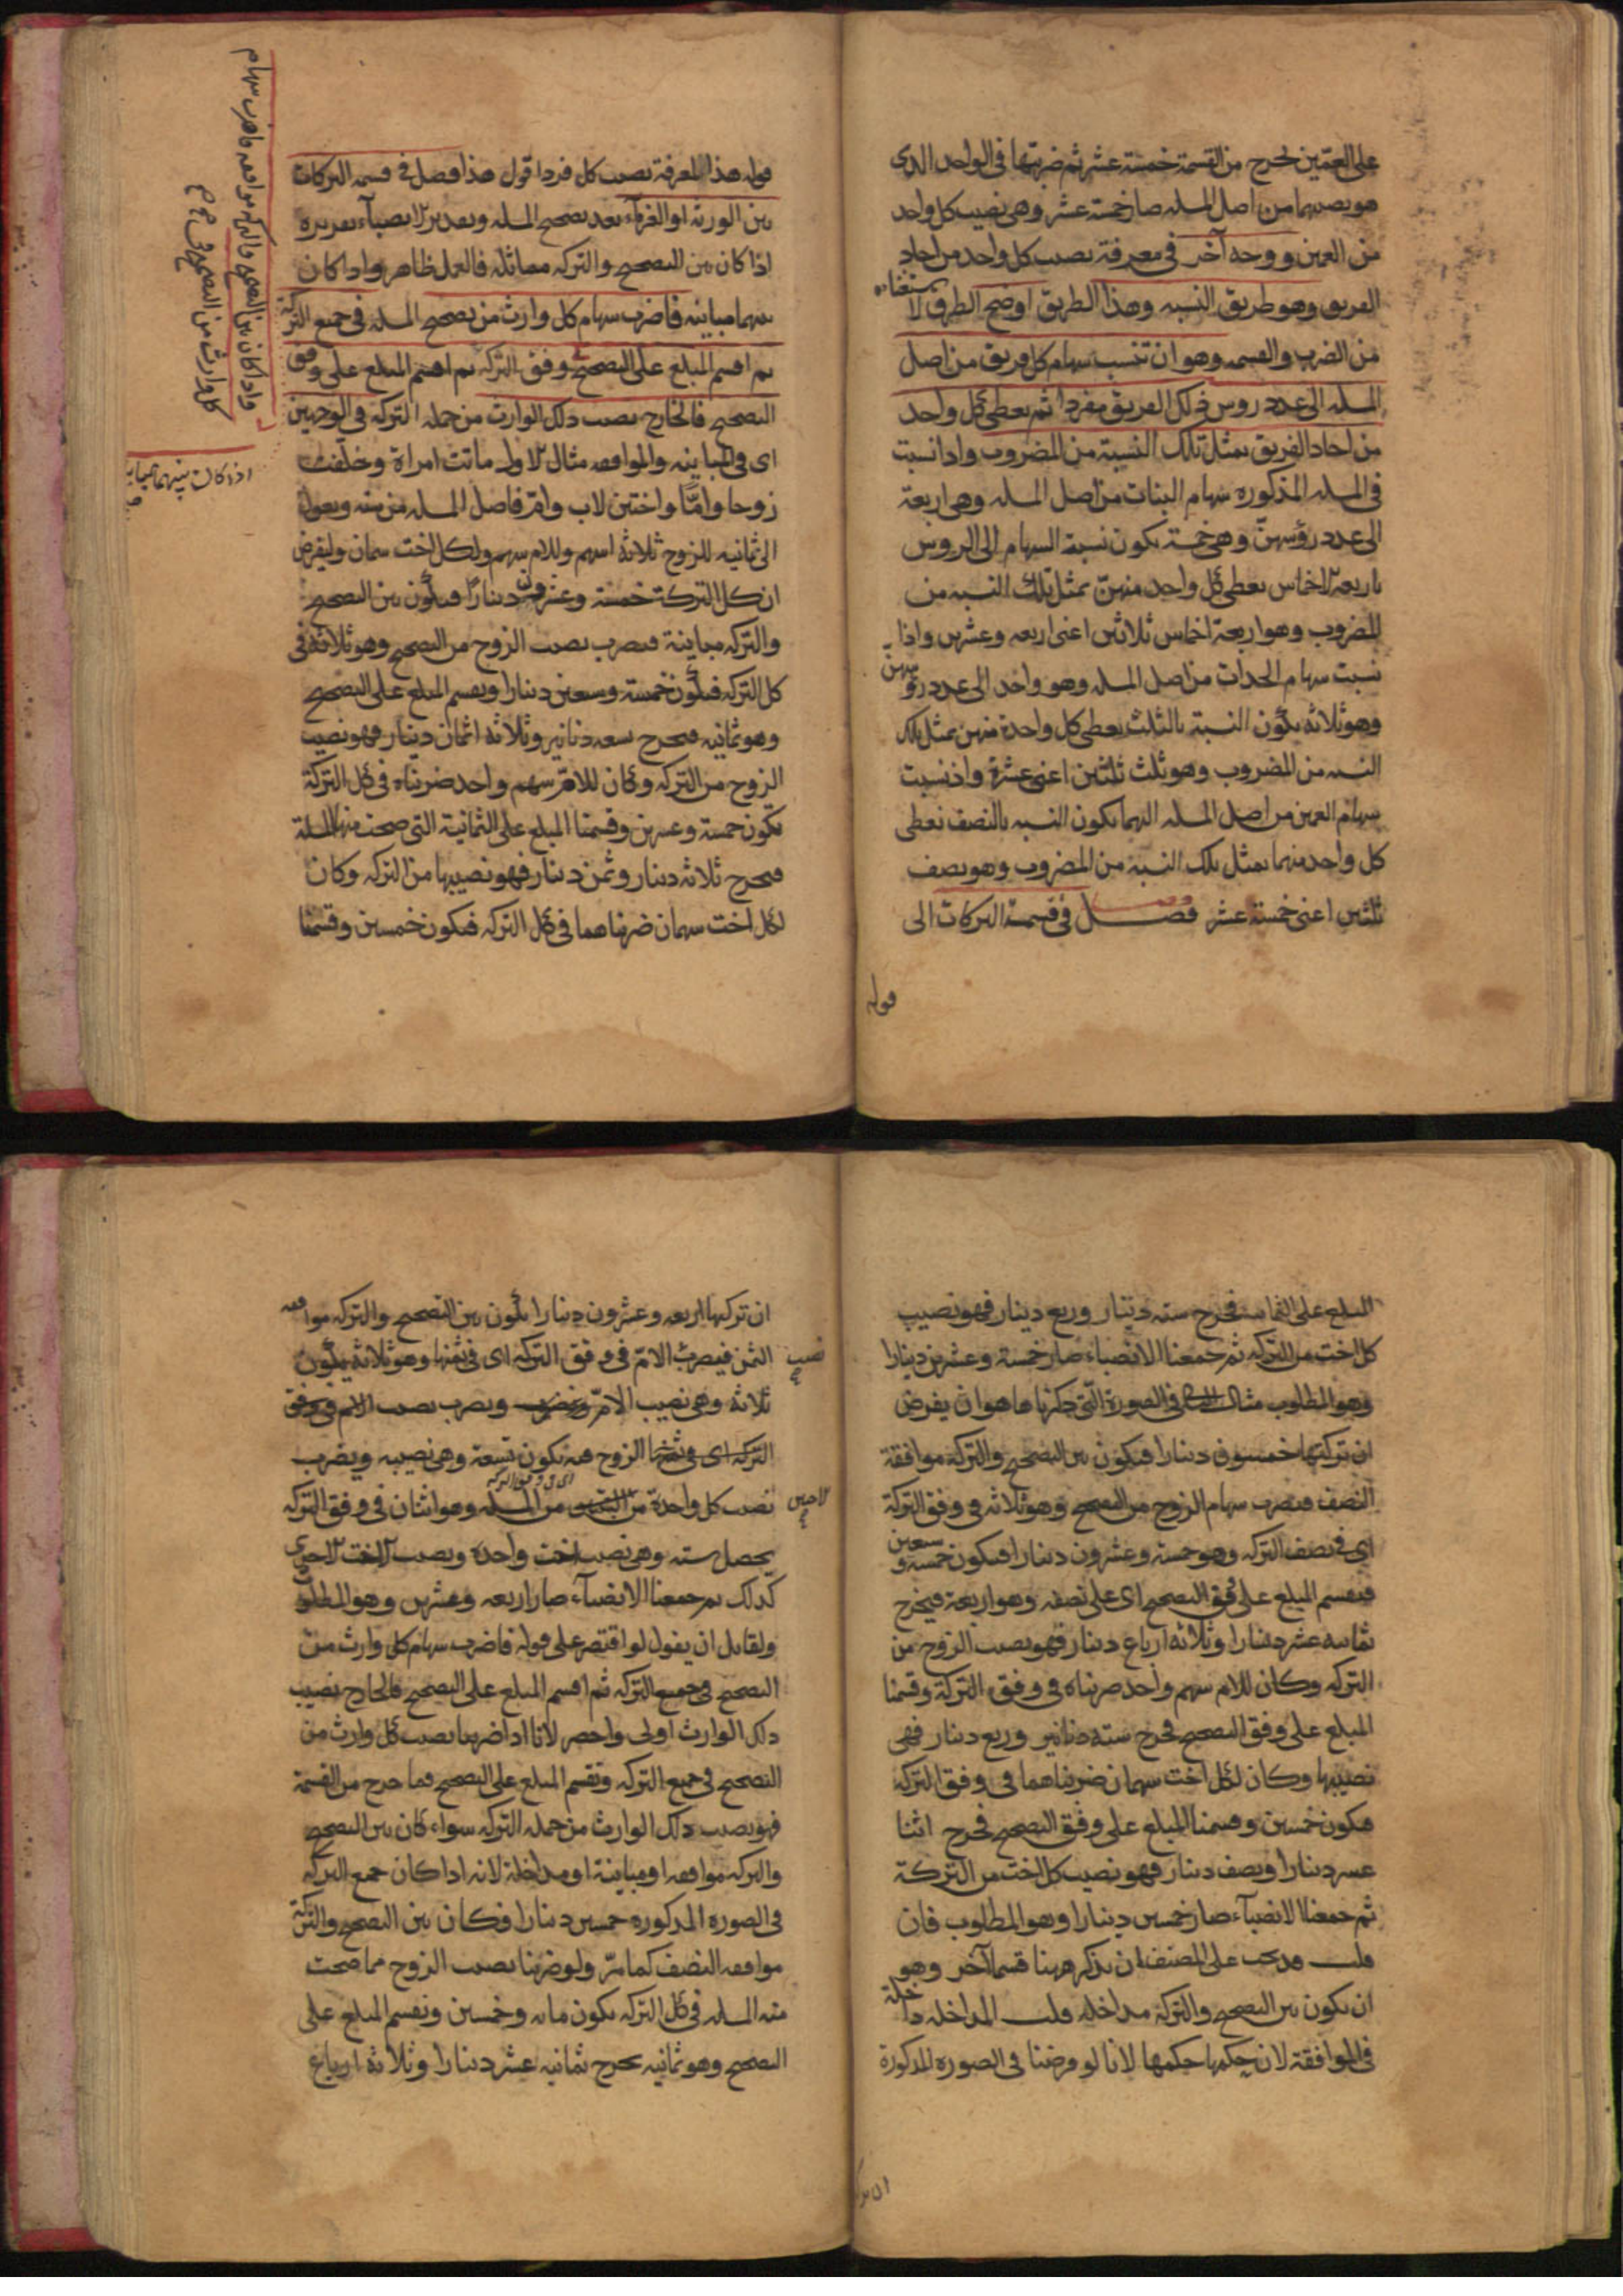 على العمتين لخرج من القسمة خمسة عشر ثم ضربتها في الواحد الذي
هو نصيبهما من اصل المسله صار خمسة عشر وهي نصيب كل واحد
من العمين ووجه آخر في معرفة نصيب كل واحد من احاد
الفريق وهو طريق النسبه وهذا الطريق اوضح الطرق لا
من الضرب والقسمه وهو ان تنسب سهام كل فريق من اصل
المسله الى عدد روس ذلك الفريق مفردا ثم يعطى كل واحد
من احاد الفريق بمثل تلك النسبة من المضروب واذا نسبت
في المسله المذكوره سهام البنات من اصل المسله وهي اربعة
الى عدد رؤسهن وهي خمسة يكون نسبة السهام الى الروس
باربعة اخماس يعطى كل واحد منهن بمثل تلك النسبه من
المضروب وهو اربعة اخماس ثلاثين اعنى اربعه وعشرين واذا
نسبت سهام الجدات من اصل المسله وهو واحد الى عدد رؤسهن
وهو ثلاثه يكون النسبة بالثلث يعطى كل واحدة منهن بمثل تلك
النسبه من المضروب وهو ثلث ثلثين اعنى عشرة واذ نسبت
سهام العمين من اصل المسله اليهما يكون النسبه بالنصف نعطى
كل واحد منهما بمثل تلك النسبه من المضروب وهو نصف
ثلثين اعنى خمسة عشر فصل في قسمة التركات الى
قوله
قوله هذا لمعرفة نصيب كل فرد اقول هذا فصل في قسمه التركات
بين الورثة او الغرماء بعد تصحيح المسله وتقدير الانصباء تقريره
اذا كان بين التصحيح والتركه مماثله فالعمل ظاهر واذا كان
بينهما مباينه فاضرب سهام كل وارث من تصحيح المسله في جميع التركة
ثم اقسم المبلغ على التصحيح وفق التركه ثم اقسم المبلغ على وفق
التصحيح فالخارج نصيب ذلك الوارث من جملة التركه في الوجهين
اى في المباينه والموافقه مثال الاول ماتت امراة وخلفت
زوجا وامّا واختين لاب وام فاصل المسله من سته ويعول
الى ثمانيه للزوج ثلاثة اسهم وللام سهم ولكل اخت سهمان وليفرض
ان كل التركة خمسة وعشرون دينارًا فيكون بين التصحيح
والتركه مباينة فيضرب نصيب الزوج من التصحيح وهو ثلاثة في
كل التركه فيكون خمسة وسبعين دينارا ويقسم المبلغ على التصحيح
وهو ثمانيه فيخرج تسعه دنانير وثلاثه اثمان دينار فهو نصيب
الزوج من التركه وكان للامّ سهم واحد ضربناه في كل التركة
يكون خمسة وعشرين وقسمنا المبلغ على الثمانية التي صحت منها المسلة
فيخرج ثلاثه دينار وثمن دينار فهو نصيبها من التركه وكان
لكل اخت سهمان ضربناهما في كل التركه فيكون خمسين وقسمنا
واذا كان بين التصحيح والتركه موافقه فاضرب سهام
كل وارث من التصحيح في
اذا كان بينهما مباينه
المبلغ على الثمانيه فخرج سته دينار وربع دينار فهو نصيب
كل اخت من التركه ثم جمعنا الانصباء صار خمسة وعشرين دينارا
وهو المطلوب مثال الثاني في الصورة التي ذكرناها هو ان يفرض
ان تركتها خمسون دينارا فيكون بين التصحيح والتركة موافقة
النصف فيضرب سهام الزوج من التصحيح وهو ثلاثه في وفق التركة
اى في نصف التركه وهو خمسة وعشرون دينارا فيكون خمسة وسبعين
فيقسم المبلغ على وفق التصحيح اى على نصفه وهو اربعة فيخرج
ثمانيه عشر دينارا وثلاثه ارباع دينار فهو نصيب الزوج من
التركه وكان للام سهم واحد ضربناه في وفق التركة وقسمنا
المبلغ على وفق التصحيح فخرج ستة دنانير وربع دينار فهى
نصيبها وكان لكل اخت سهمان ضربناهما في وفق التركه
فيكون خمسين وقسمنا المبلغ على وفق التصحيح فخرج اثنا
عشر دينارا ونصف دينار فهو نصيب كل اخت من التركة
ثم جمعنا الانصباء صار خمسين دينارا وهو المطلوب فان
قلت قد يجب على المصنف ان يذكر ههنا قسما آخر وهو
ان يكون بين التصحيح والتركة مداخله قلت المداخله داخلة
في الموافقة لان حكمها حكمها لانا لو فرضنا في الصوره المذكورة
ان تركتها اربعه وعشرون دينارا يكون بين التصحيح والتركه موافقه
الثمن فيضرب نصيب الامّ في وفق التركه اى في ثمنها وهو ثلاثة يكون
ثلاثة وهى نصيب الامّ ويضرب نصيب
الزوج فيه يكون تسعة وهى نصيبه ويضرب
نصيب كل واحدة من الاختين من المسله وهو اثنان في وفق التركه
يحصل سته وهى نصيب اخت واحدة ونصيب الاخت الاخرى
كذلك ثم جمعنا الانصباء صار اربعه وعشرين وهو المطلوب
ولقائل ان يقول لو اقتصر على قوله فاضرب سهام كل وارث من
التصحيح في جميع التركه ثم اقسم المبلغ على التصحيح فالخارج نصيب
ذلك الوارث اولى واحصر لانا اذا ضربنا نصيب كل وارث من
التصحيح في جميع التركه ونقسم المبلغ على التصحيح فما خرج من القسمة
فهو نصيب ذلك الوارث من جمله التركه سواء كان بين التصحيح
والتركه موافقه او مباينة او مداخلة لانه اذا كان جميع التركه
في الصوره المذكوره خمسين دينارا وكان بين التصحيح والتركة
موافقه النصف كما مرّ ولو ضربنا نصيب الزوج مما صحت
منه المسله في كل التركه يكون مايه وخمسين ونقسم المبلغ على
التصحيح وهو ثمانيه يخرج ثمانيه عشر دينارا وثلاثة ارباع